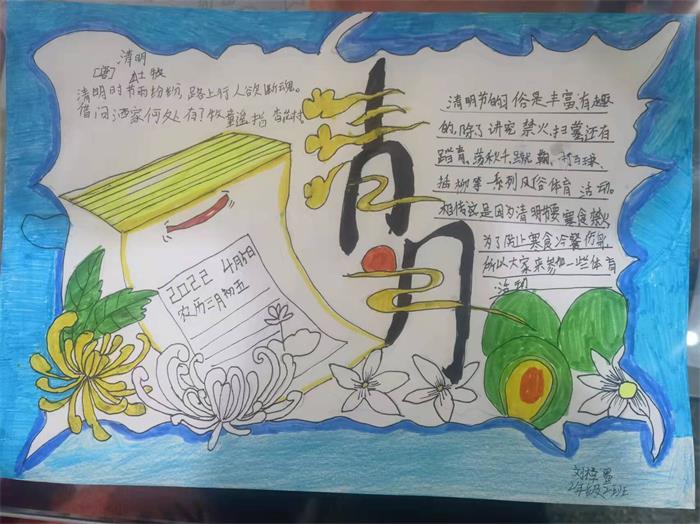 清明
[唐] 杜牧
清明时节雨纷纷，路上行人欲断魂。
借问酒家何处有？牧童遥指杏花村
2022 4月5日
农历三月初五
清明
清明节的习俗是丰富有趣
的,除了讲究禁火、扫墓还有
踏青、荡秋千、蹴鞠、打马球、
插柳等系列风俗体育活动。
相传这是因为清明要寒食禁火
为了防止寒食冷餐伤身,
所以大家来参加一些体育
活动
2年级2班